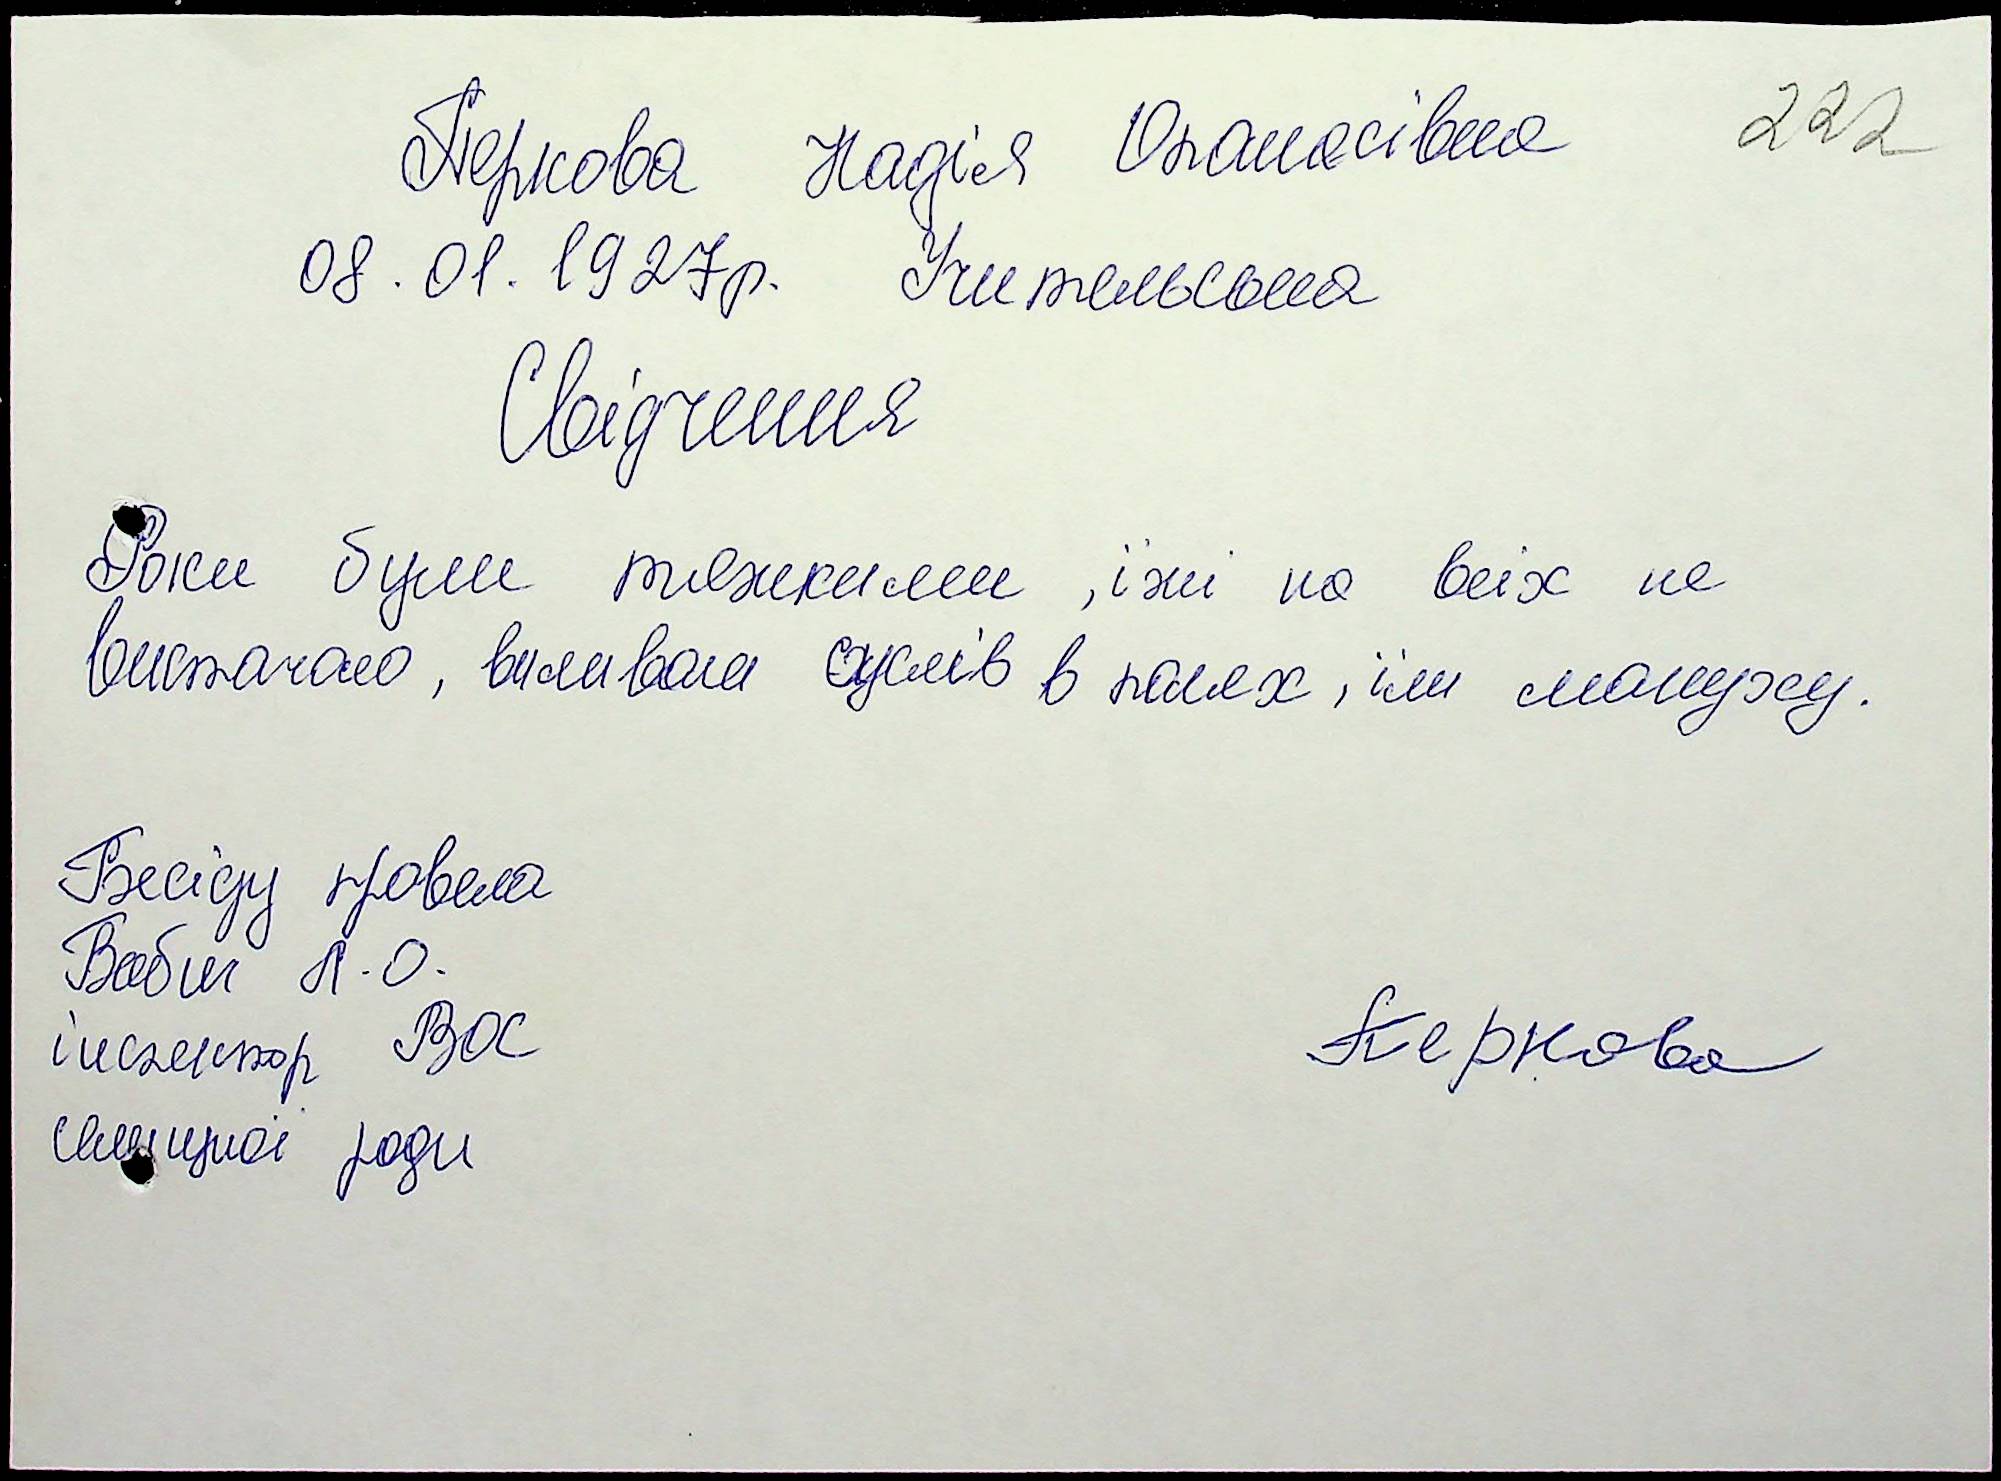 Перкова Надія Опанасівна 222
08.01.1927р. Учительська
Свідчення
Роки були тяжкими, їжі на всіх не
вистачало, виливали суслів в полях, їли макуху.
Бесіду провела
Бабич Л.О.
інспектор ВОС
селищної ради
Перкова